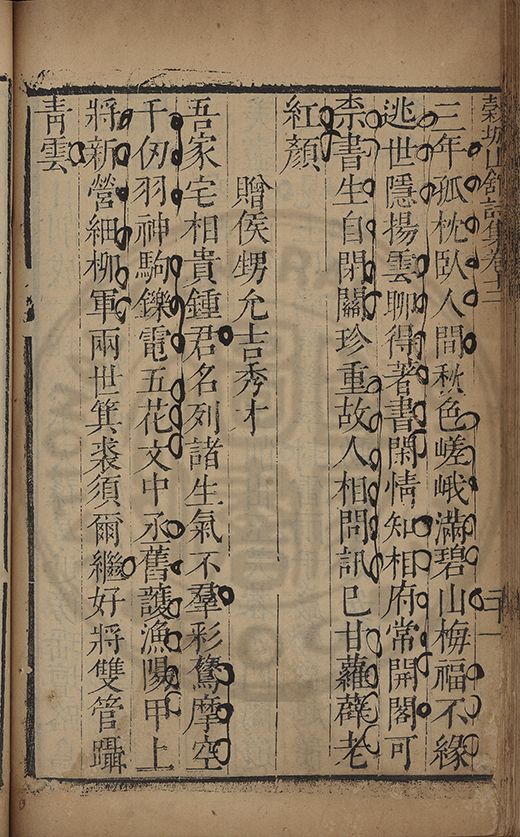 穀城山館詩集卷十二
三年孤枕臥人間秋色嵯峨滿碧山梅福不緣
逃世隱揚雲聊得著書閑情知相府常開閣可
柰書生自閉關珍重故人相問訊已甘蘿薜老
紅顏
贈侯甥允吉秀才
吾家宅相貴鍾君名列諸生氣不羣彩鶱摩空
千仞羽神駒鑠電五花文中丞舊護漁陽甲上
將新營細柳軍兩世箕裘須爾繼好將雙管躡
青雲